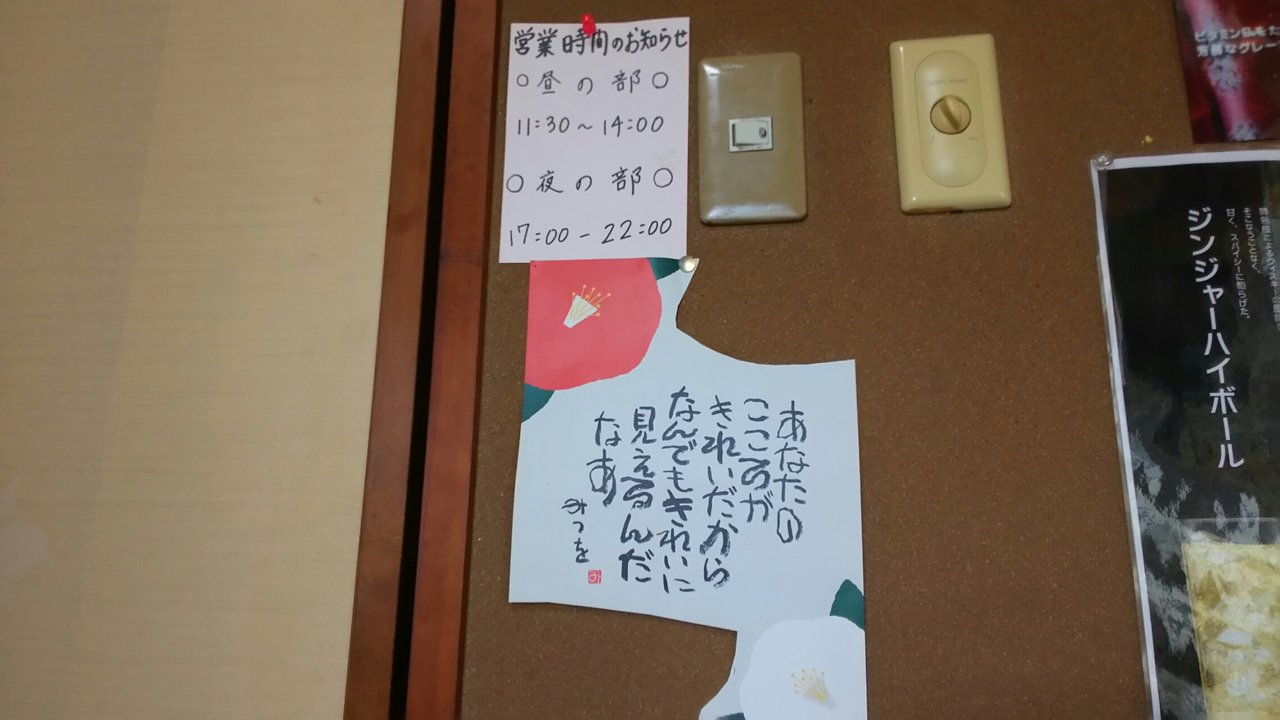 営業時間のお知らせ
○昼の部○
11:30～14:00
○夜の部○
17:00-22:00
あなたの
こころが
きれいだから
なんでもきれいに
見えるんだ
なあ
みつを
そこなうことなく、
甘く、スパイシーに和らげた。
ジンジャーハイボール